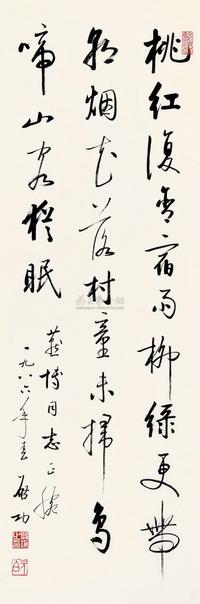 桃紅復含宿雨柳綠更帶
朝烟花落村童未掃鳥
啼山客猶眠
博同志正腕
一九八六年 啟功